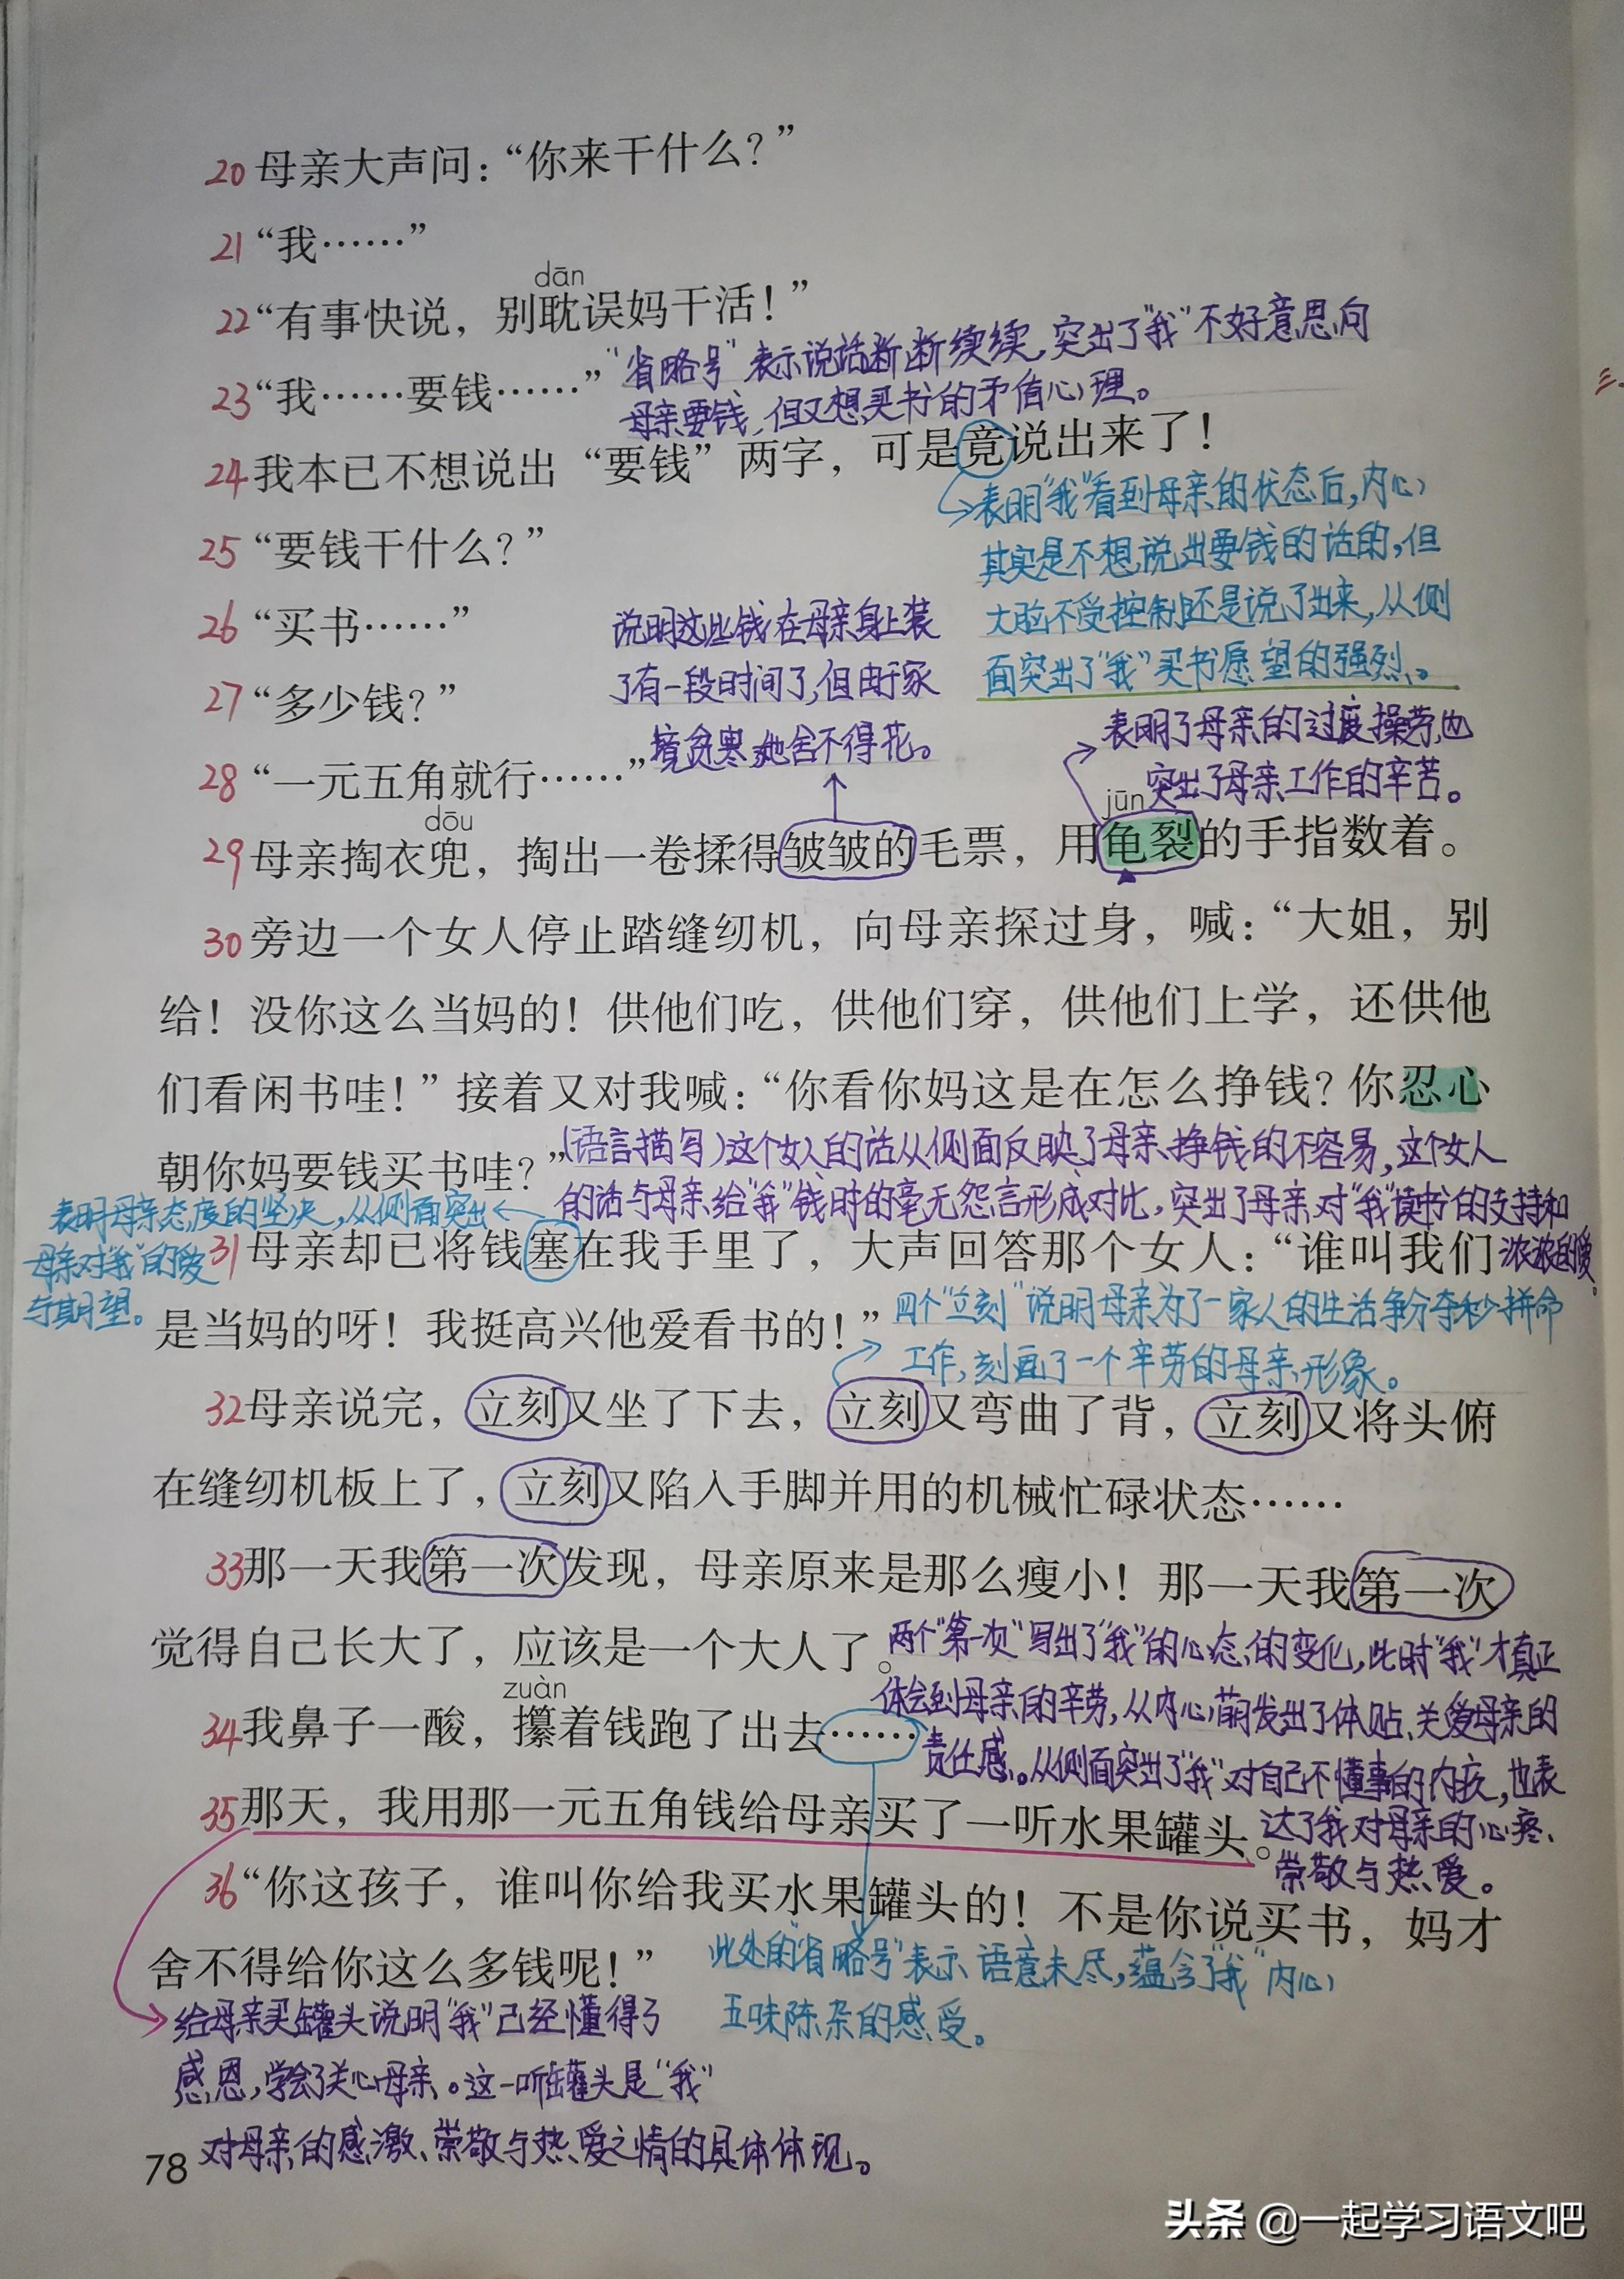 20 母亲大声问：“你来干什么？”
21 “我……”
dān
22 “有事快说，别耽误妈干活！”
23 “我……要钱……”
“省略号”表示说话断断续续，突出了“我”不好意思向
母亲要钱，但又想买书的矛盾心理。
24 我本已不想说出“要钱”两字，可是竟说出来了！
表明“我”看到母亲的状态后，内心
其实是不想说出要钱的话的，但
大脑不受控制还是说了出来，从侧
面突出了“我”买书愿望的强烈。
25 “要钱干什么？”
26 “买书……”
27 “多少钱？”
28 “一元五角就行……”
说明这些钱在母亲身上装
了有一段时间了，但由于家
境贫寒她舍不得花。
表明了母亲的过度操劳，也
突出了母亲工作的辛苦。
dōu
jūn
29 母亲掏衣兜，掏出一卷揉得皱皱的毛票，用龟裂的手指数着。
30 旁边一个女人停止踏缝纫机，向母亲探过身，喊：“大姐，别
给！没你这么当妈的！供他们吃，供他们穿，供他们上学，还供他
们看闲书哇！”接着又对我喊：“你看你妈这是在怎么挣钱？你忍心
朝你妈要钱买书哇？”
（语言描写）这个女人的话从侧面反映了母亲挣钱的不容易，这个女人
的话与母亲给“我”钱时的毫无怨言形成对比，突出了母亲对“我”读书的支持和
浓浓的爱。
表明母亲态度的坚决，从侧面突出
母亲对“我”的爱
与期望。
31 母亲却已将钱塞在我手里了，大声回答那个女人：“谁叫我们
是当妈的呀！我挺高兴他爱看书的！”
四个“立刻”说明母亲为了一家人的生活争分夺秒拼命
工作，刻画了一个辛劳的母亲形象。
32 母亲说完，立刻又坐了下去，立刻又弯曲了背，立刻又将头俯
在缝纫机板上了，立刻又陷入手脚并用的机械忙碌状态……
33 那一天我第一次发现，母亲原来是那么瘦小！那一天我第一次
觉得自己长大了，应该是一个大人了。
两个“第一次”写出了“我”的心态的变化，此时“我”才真正
体会到母亲的辛劳，从内心萌发出了体贴、关爱母亲的
责任感。从侧面突出了“我”对自己不懂事的内疚，也表
达了我对母亲的心疼、
崇敬与热爱。
zuàn
34 我鼻子一酸，攥着钱跑了出去……
35 那天，我用那一元五角钱给母亲买了一听水果罐头。
36 “你这孩子，谁叫你给我买水果罐头的！不是你说买书，妈才
舍不得给你这么多钱呢！”
此处的“省略号”表示语意未尽，蕴含了“我”内心
五味陈杂的感受。
给母亲买罐头说明“我”已经懂得了
感恩，学会了关心母亲。这一听罐头是“我”
对母亲的感激、崇敬与热爱之情的具体体现。
78
三、
头条 @一起学习语文吧